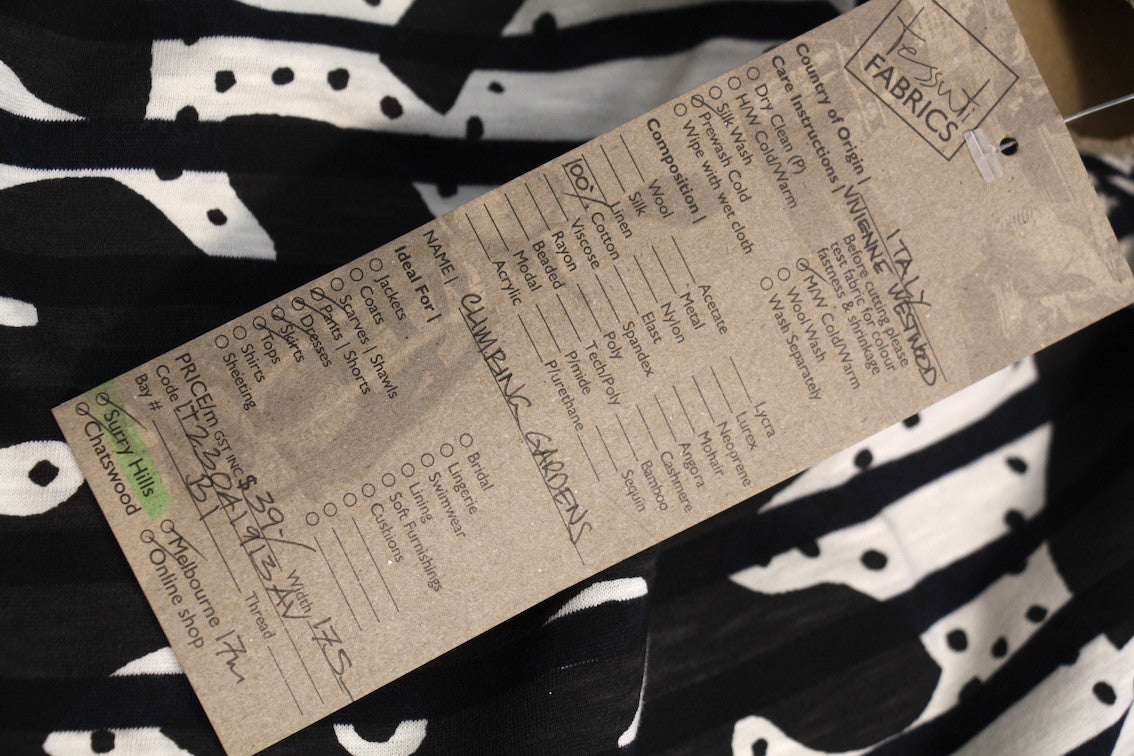 Tessuti
FABRICS
Country of Origin | ITALY
Care Instructions | VIVIENNE WESTWOOD
Before cutting please
test fabric for colour
fastness & shrinkage
Dry Clean (P)
H/W Cold/Warm
Silk Wash
Prewash Cold
Wipe with wet cloth
M/W Cold/Warm
Wool Wash
Wash Separately
Composition |
Wool
Silk
Linen
100% Cotton
Viscose
Rayon
Beaded
Modal
Acrylic
Acetate
Metal
Nylon
Elast
Spandex
Poly
Tech/Poly
P/mide
P/urethane
Lycra
Lurex
Neoprene
Mohair
Angora
Cashmere
Bamboo
Sequin
NAME | CLIMBING GARDENS
Ideal For |
Jackets
Coats
Scarves | Shawls
Pants | Shorts
Dresses
Skirts
Tops
Shirts
Sheeting
Bridal
Lingerie
Swimwear
Lining
Soft Furnishings
Cushions
PRICE/m GST INC $ 39./ Width 175
Code
Bay # B1 Thread
Surry Hills
Chatswood
Melbourne 17m
Online shop